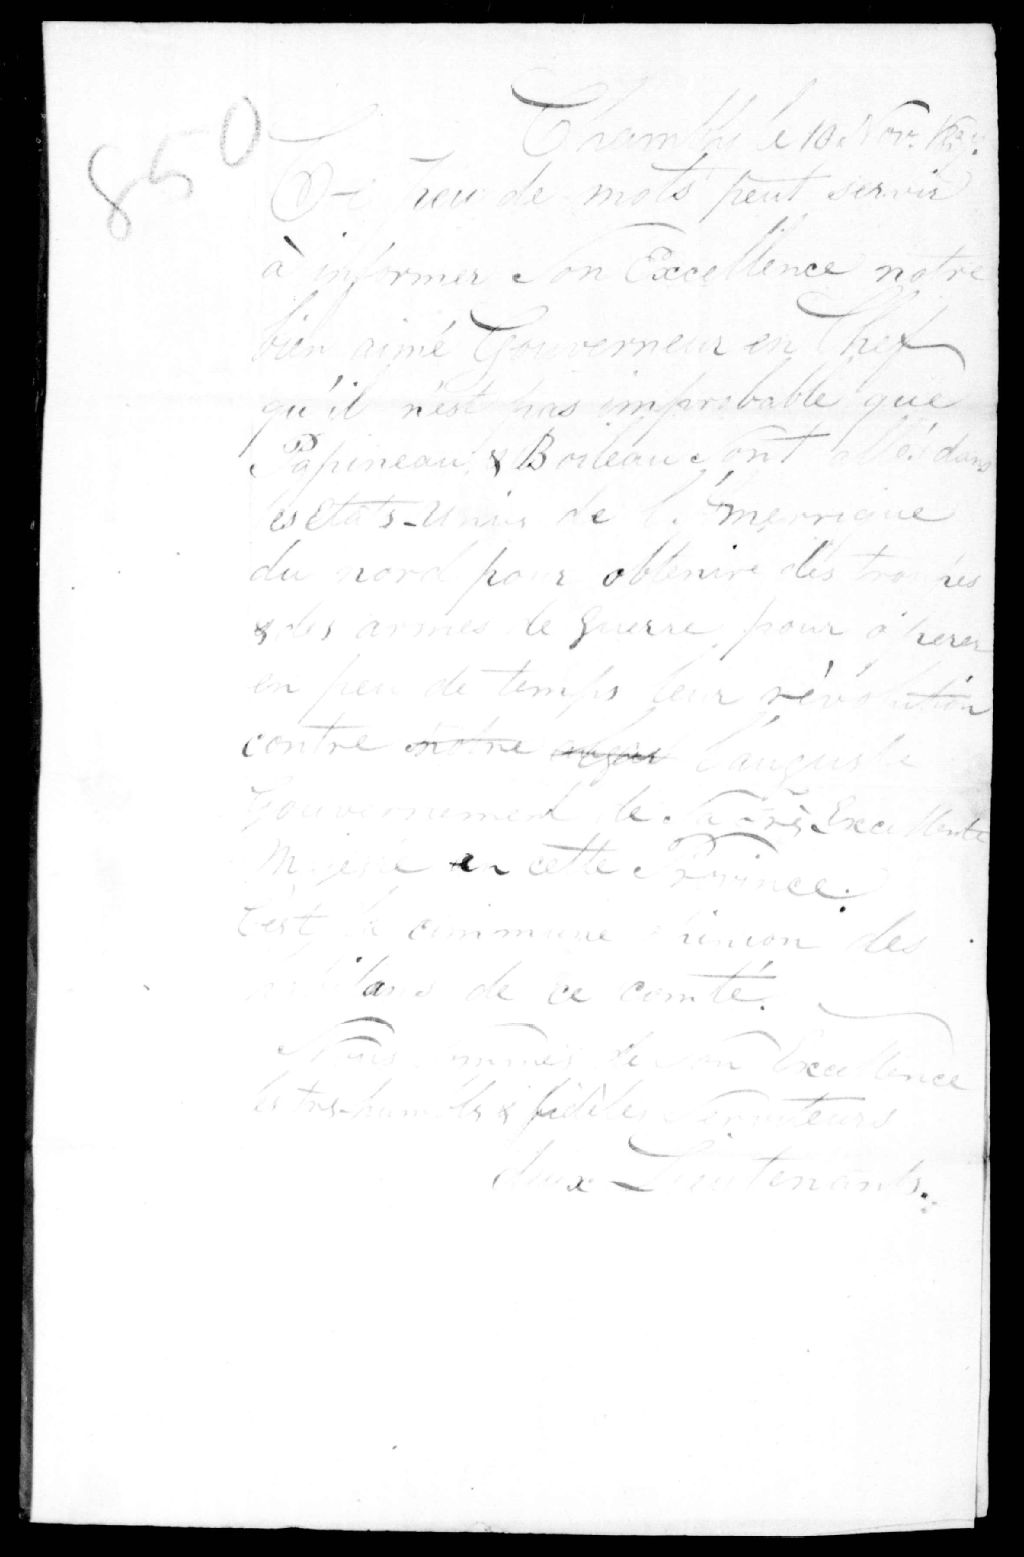 850
Chambly le 10 Nov. 1837.
Ce peu de mots peut servir
à informer Son Excellence notre
bien aimé Gouverneur en Chef
qu'il n'est pas improbable que
Papineau & Boileau sont allés dans
les états-Unis de l'Amerrique
du nord pour obtenire des troupes
& des armes de guerre pour opérer
en peu de temps leur révolution
contre notre l'auguste
Gouvernement de Sa Très Excellente
Majesté en cette Province.
C'est la commune opinion des
habitans de ce comté.
Nous sommes de Son Excellence
les très-humbles & fidèles Serviteurs
deux-Lieutenants.